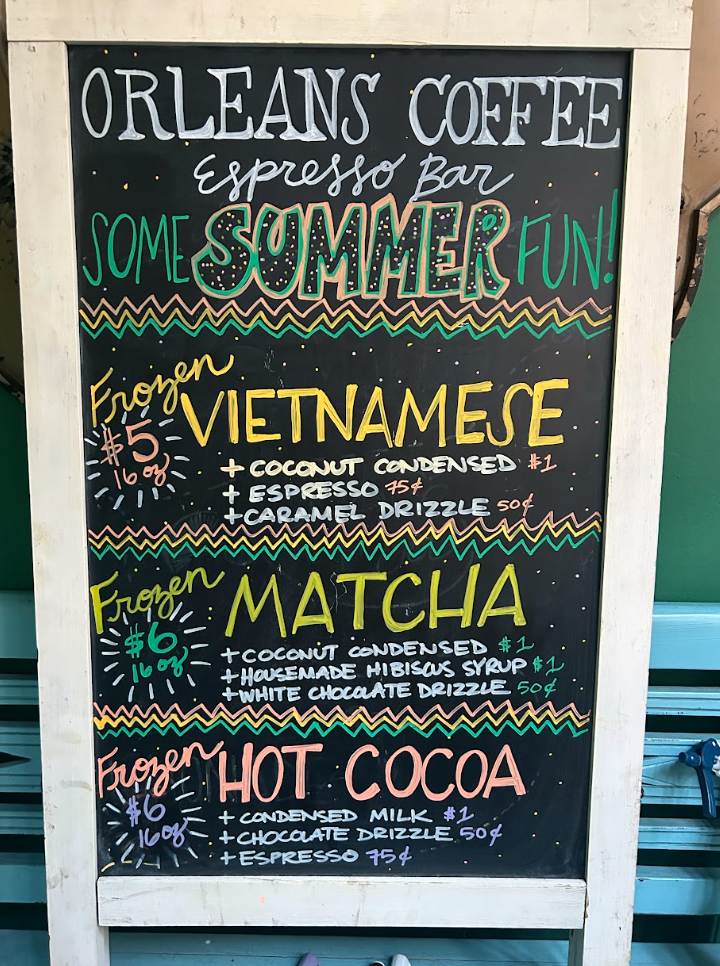 ORLEANS COFFEE
Espresso Bar
SOME SUMMER FUN!
Frozen VIETNAMESE
$5
16 oz
+ COCONUT CONDENSED $1
+ ESPRESSO 75¢
+ CARAMEL DRIZZLE 50¢
Frozen MATCHA
$6
16 oz
+ COCONUT CONDENSED $1
+ HOUSEMADE HIBISCUS SYRUP $1
+ WHITE CHOCOLATE DRIZZLE 50¢
Frozen HOT COCOA
$6
16 oz
+ CONDENSED MILK $1
+ CHOCOLATE DRIZZLE 50¢
+ ESPRESSO 75¢